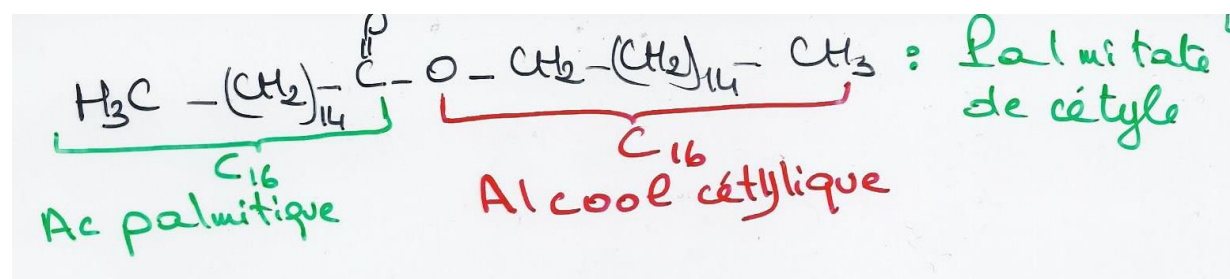 O
H₃C – (CH₂)₁₄ – C – O – CH₂ – (CH₂)₁₄ – CH₃ : Palmitate
de cétyle
C₁₆
C₁₆
Ac palmitique
Alcool cétylique